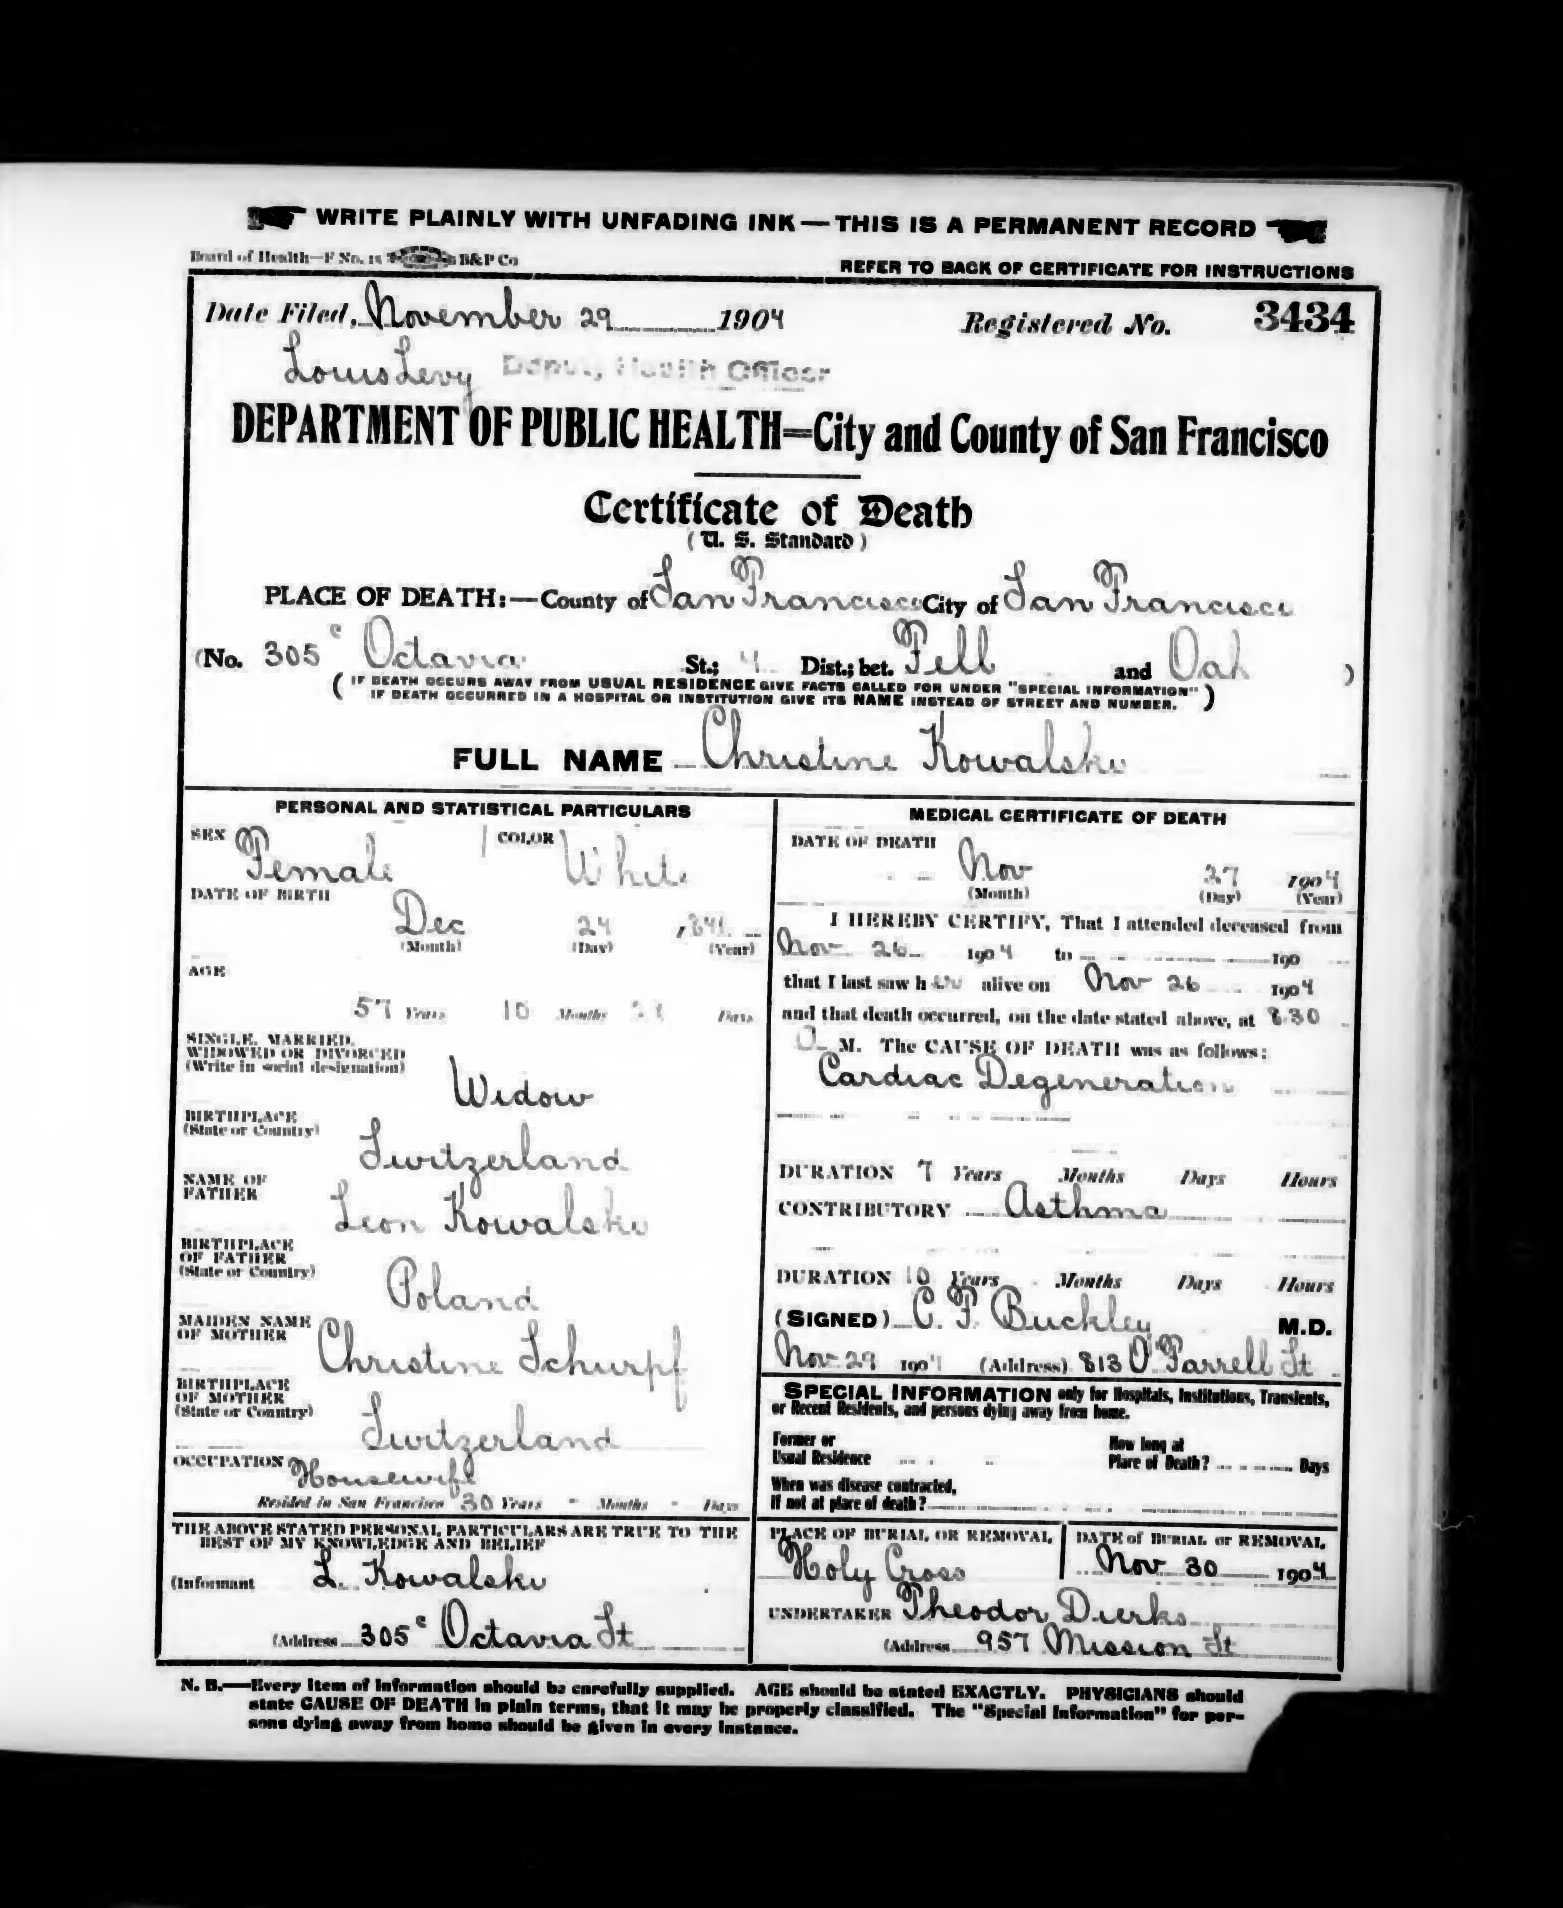 WRITE PLAINLY WITH UNFADING INK — THIS IS A PERMANENT RECORD
Board of Health—F No. 15 B&P Co
REFER TO BACK OF CERTIFICATE FOR INSTRUCTIONS
Date Filed, November 29 1904 Registered No. 3434
Louis Levy Deputy Health Officer
DEPARTMENT OF PUBLIC HEALTH=City and County of San Francisco
Certificate of Death
(U. S. Standard)
PLACE OF DEATH:—County of San Francisco City of San Francisco
(No. 305 c Octavia St.; 4 Dist.; bet. Fell and Oak )
( IF DEATH OCCURS AWAY FROM USUAL RESIDENCE GIVE FACTS CALLED FOR UNDER "SPECIAL INFORMATION"
IF DEATH OCCURRED IN A HOSPITAL OR INSTITUTION GIVE ITS NAME INSTEAD OF STREET AND NUMBER. )
FULL NAME Christine Kowalski
PERSONAL AND STATISTICAL PARTICULARS
SEX Female COLOR White
DATE OF BIRTH
Dec 24
(Month) (Day) (Year)
AGE
57 Years 10 Months Days
SINGLE, MARRIED,
WIDOWED OR DIVORCED
(Write in social designation)
Widow
BIRTHPLACE
(State or Country)
Switzerland
NAME OF
FATHER
Leon Kowalski
BIRTHPLACE
OF FATHER
(State or Country)
Poland
MAIDEN NAME
OF MOTHER
Christine Schurpf
BIRTHPLACE
OF MOTHER
(State or Country)
Switzerland
OCCUPATION Housewife
Resided in San Francisco 30 Years - Months - Days
THE ABOVE STATED PERSONAL PARTICULARS ARE TRUE TO THE
BEST OF MY KNOWLEDGE AND BELIEF
(Informant L. Kowalski
(Address 305 c Octavia St
MEDICAL CERTIFICATE OF DEATH
DATE OF DEATH
Nov 27 1904
(Month) (Day) (Year)
I HEREBY CERTIFY, That I attended deceased from
Nov 26 1904 to 190
that I last saw her alive on Nov 26 1904
and that death occurred, on the date stated above, at 8.30
a M. The CAUSE OF DEATH was as follows:
Cardiac Degeneration
DURATION 7 Years Months Days Hours
CONTRIBUTORY Asthma
DURATION 10 Years Months Days Hours
(SIGNED) C. F. Buckley M.D.
Nov 29 1904 (Address) 813 O'Farrell St
SPECIAL INFORMATION only for Hospitals, Institutions, Transients,
or Recent Residents, and persons dying away from home.
Former or
Usual Residence
How long at
Place of Death? Days
When was disease contracted,
If not at place of death?
PLACE OF BURIAL OR REMOVAL
Holy Cross
DATE of BURIAL or REMOVAL
Nov 30 1904
UNDERTAKER Theodor Dierks
(Address 957 Mission St
N. B.—Every item of information should be carefully supplied. AGE should be stated EXACTLY. PHYSICIANS should
state CAUSE OF DEATH in plain terms, that it may be properly classified. The "Special Information" for per-
sons dying away from home should be given in every instance.